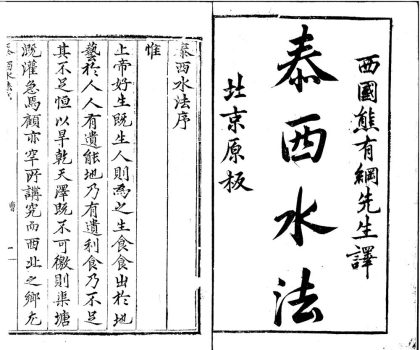 西國熊有綱先生譯
泰西水法
北京原板
泰西水法序
惟
上帝好生既生人則為之生食食出於地
藝於人人有遺能地乃有遺利食乃不足
其不足恒以旱乾天澤既不可徼則渠塘
溉灌急焉顧亦罕所講究而西北之鄉尤